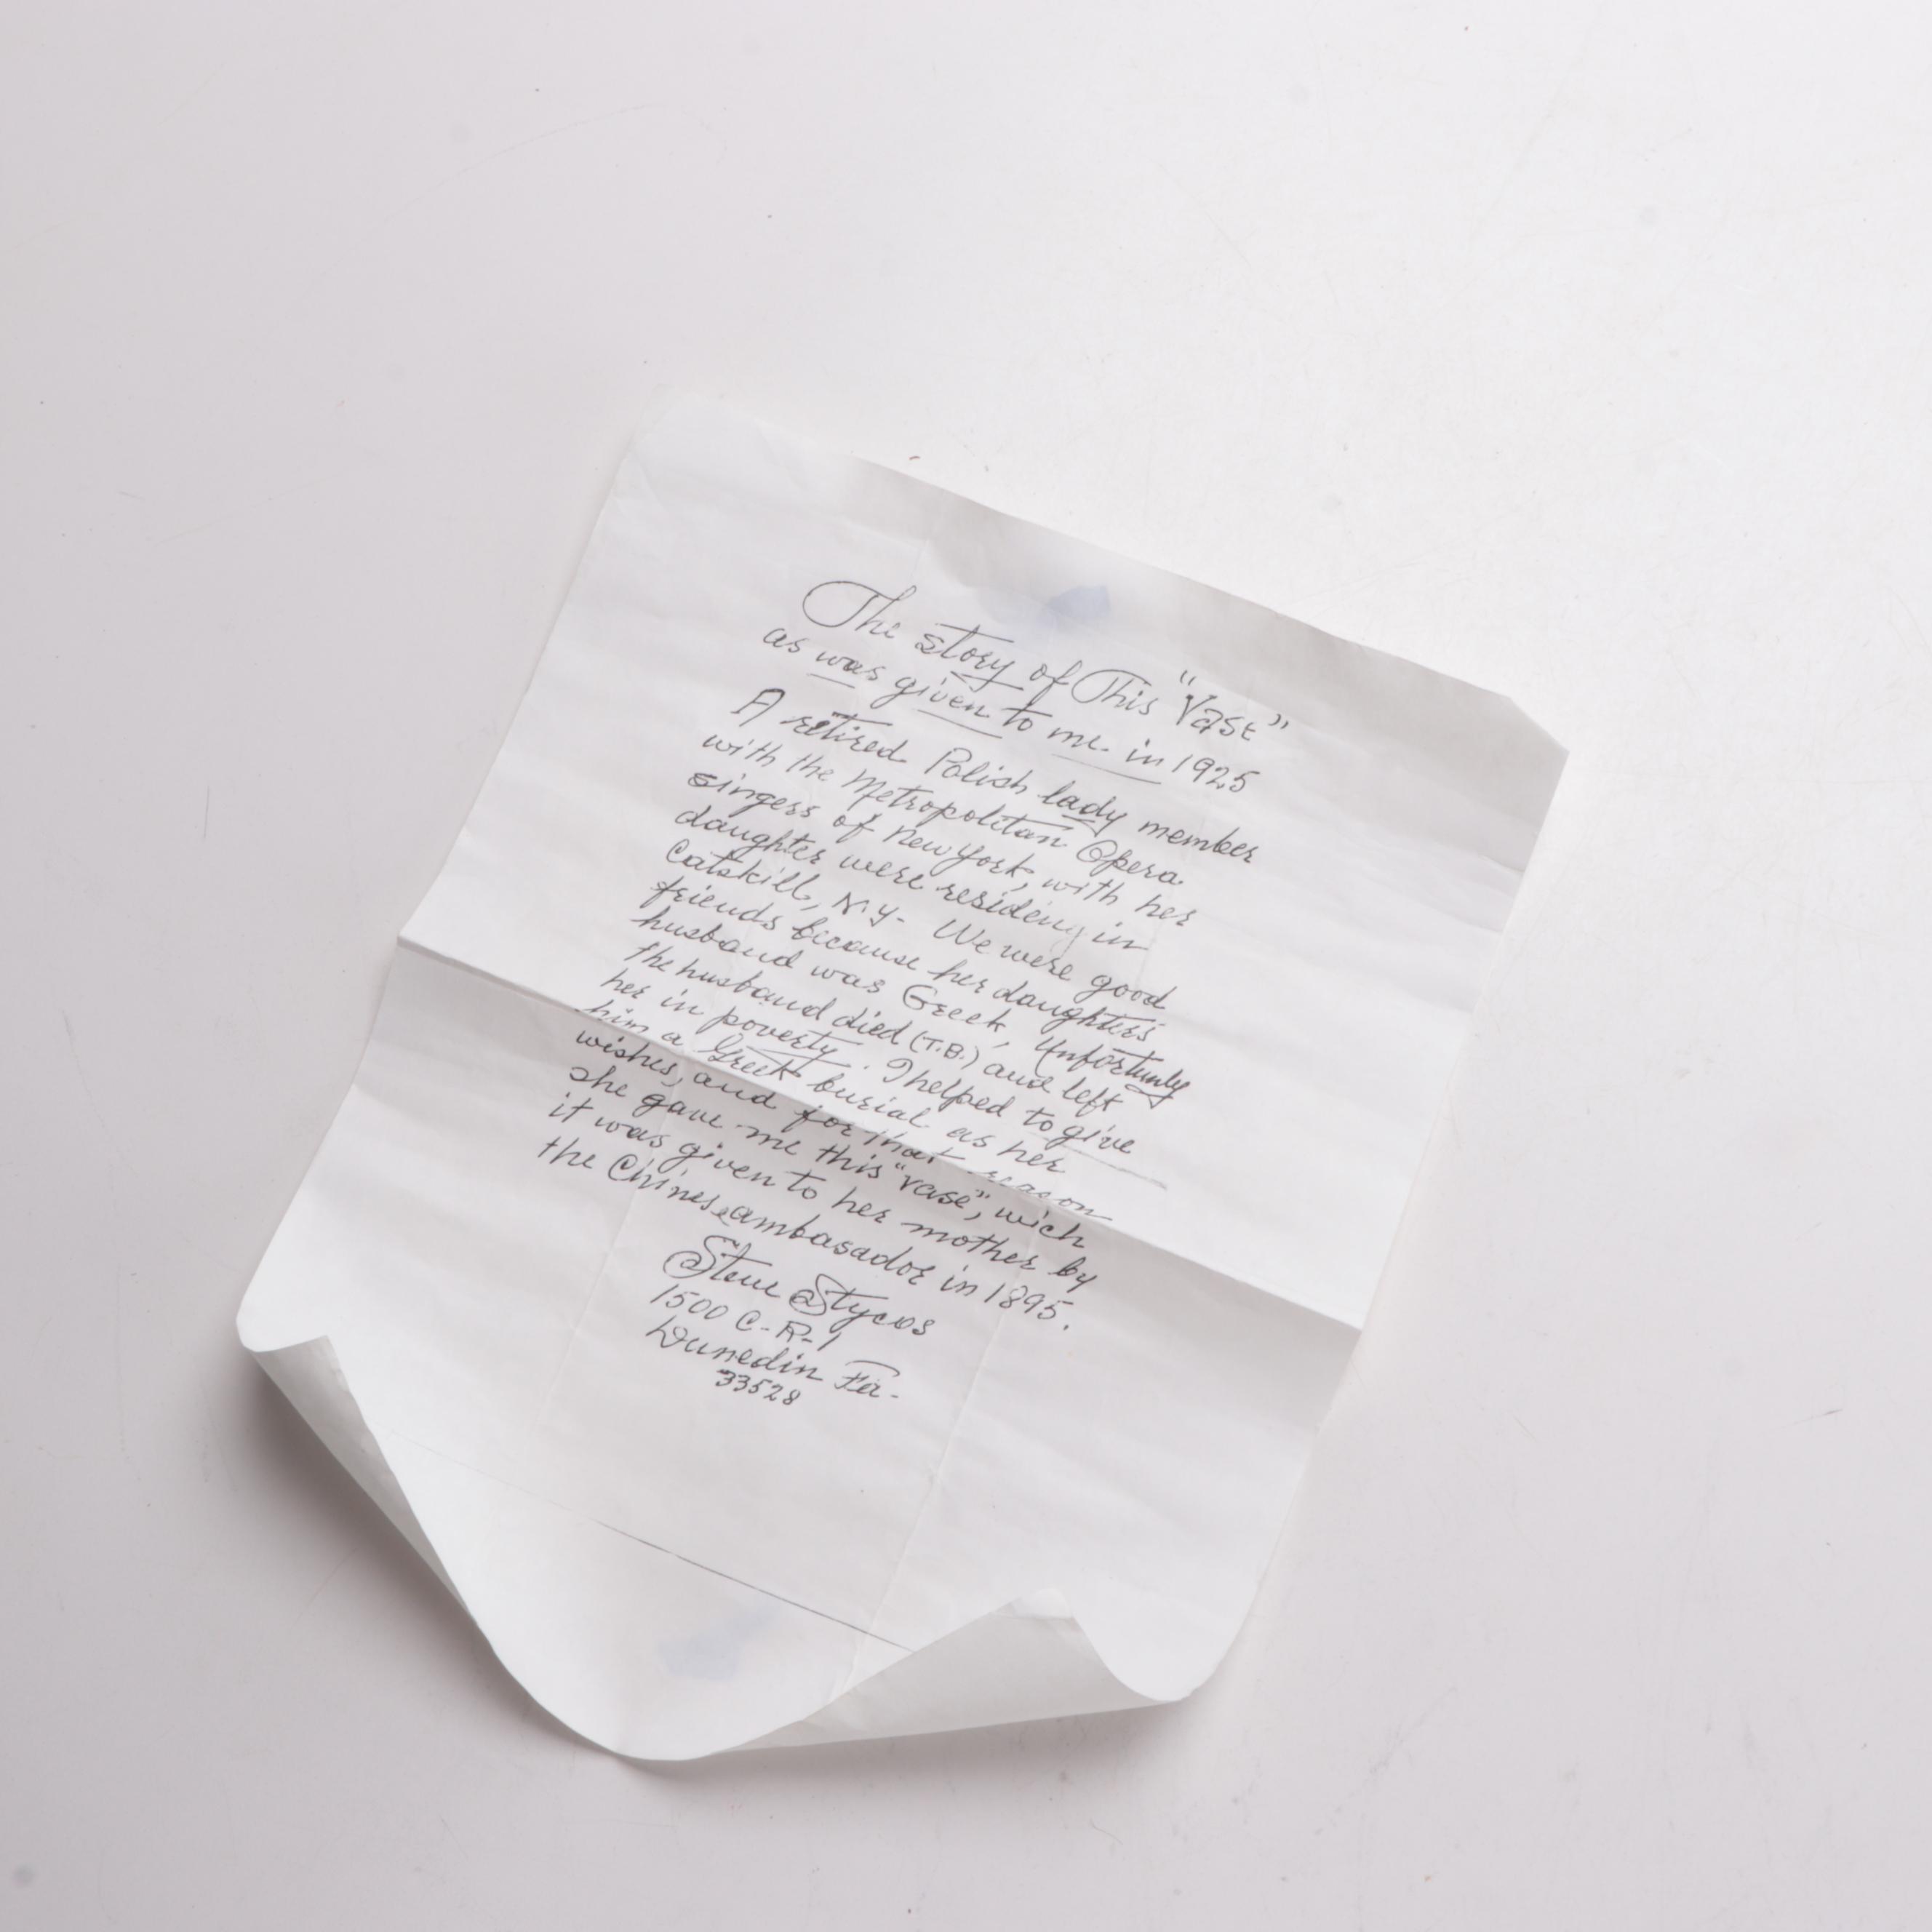 The story of This "Vase"
as was given to me in 1925
A retired Polish lady member
with the Metropolitan Opera
singers of New York, with her
daughter were residing in
Catskill, N.Y- We were good
friends because her daughters
husband was Greek, Unfortunly
the husband died (T.B.) and left
her in poverty. I helped to give
him a Greek burial as her
wishes, and for that reason
she gave me this "vase", wich
it was given to her mother by
the Chinese ambasador in 1895.
Steve Stycos
1500 C-R-1
Dunedin Fa-
33528